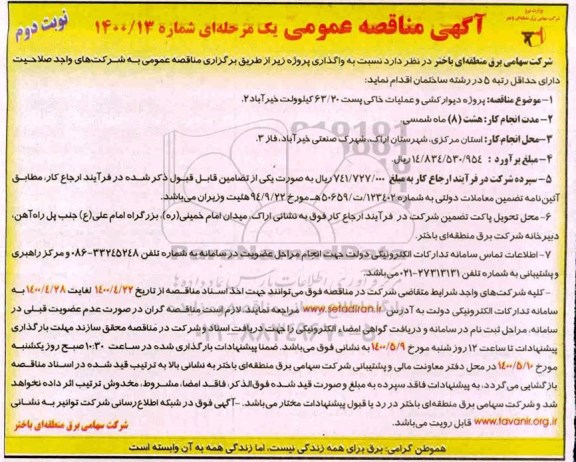 آگهی مناقصه عمومی یک مرحله‌ای شماره ۱۴۰۰/۱۳
نوبت دوم
شرکت سهامی برق منطقه‌ای باختر
شرکت سهامی برق منطقه‌ای باختر در نظر دارد نسبت به واگذاری پروژه زیر از طریق برگزاری مناقصه عمومی به شرکت‌های واجد صلاحیت
دارای حداقل رتبه ۵ در رشته ساختمان اقدام نماید:
۱- موضوع مناقصه: پروژه دیوارکشی و عملیات خاکی پست ۶۳/۲۰ کیلوولت خیرآباد۲.
۲- مدت انجام کار: هشت (۸) ماه شمسی.
۳- محل انجام کار: استان مرکزی، شهرستان اراک، شهرک صنعتی خیرآباد، فاز ۳.
۴- مبلغ برآورد : ۱۴/۸۳۴/۵۳۰/۹۵۴ ریال.
۵- سپرده شرکت در فرآیند ارجاع کار به مبلغ ۷۴۱/۷۲۷/۰۰۰ ریال به صورت یکی از تضامین قابل قبول ذکر شده در فرآیند ارجاع کار، مطابق
آئین نامه تضمین معاملات دولتی به شماره ۱۲۳۴۰۲/ت/۵۰۶۵۹هـ مورخ ۹۴/۹/۲۲ هئیت وزیران می‌باشد.
۶- محل تحویل پاکت تضمین شرکت در فرآیند ارجاع کار فوق به نشانی اراک، میدان امام خمینی(ره)، بزرگراه امام علی(ع) جنب پل راه‌آهن،
دبیرخانه شرکت برق منطقه‌ای باختر.
۷- اطلاعات تماس سامانه تدارکات الکترونیکی دولت جهت انجام مراحل عضویت در سامانه به شماره تلفن ۳۳۲۴۵۲۴۸-۰۸۶ و مرکز راهبری
و پشتیبانی به شماره تلفن ۲۷۳۱۳۱۳۱-۰۲۱ می‌باشد.
- کلیه شرکت‌های واجد شرایط متقاضی شرکت در مناقصه فوق می‌توانند جهت اخذ اسناد مناقصه از تاریخ ۱۴۰۰/۴/۲۲ لغایت ۱۴۰۰/۴/۲۸ به
سامانه تدارکات الکترونیکی دولت به آدرس www.setadiran.ir مراجعه نمایند. لازم است مناقصه گران در صورت عدم عضویت قبلی در
سامانه، مراحل ثبت نام در سامانه و دریافت گواهی امضاء الکترونیکی را جهت دریافت اسناد و شرکت در مناقصه محقق سازند مهلت بارگذاری
پیشنهادات تا ساعت ۱۲ روز شنبه مورخ ۱۴۰۰/۵/۹ به نشانی فوق می‌باشد. ضمنا پیشنهادات بارگذاری شده در ساعت ۱۰:۳۰ صبح روز یکشنبه
مورخ ۱۴۰۰/۵/۱۰ در محل دفتر معاونت مالی و پشتیبانی شرکت سهامی برق منطقه‌ای باختر به نشانی بالا به ترتیب قید شده در اسناد مناقصه
بازگشایی می‌گردد. به پیشنهادات فاقد سپرده به مبلغ و صورت قید شده فوق‌الذکر، فاقد امضا، مشروط، مخدوش ترتیب اثر داده نخواهد
شد و شرکت سهامی برق منطقه‌ای باختر در رد یا قبول پیشنهادات مختار می‌باشد. - آگهی فوق در شبکه اطلاع‌رسانی شرکت توانیر به نشانی
www.tavanir.org.ir قابل رویت می‌باشد.
شرکت سهامی برق منطقه‌ای باختر
هموطن گرامی: برق برای همه زندگی نیست، اما زندگی همه به آن وابسته است